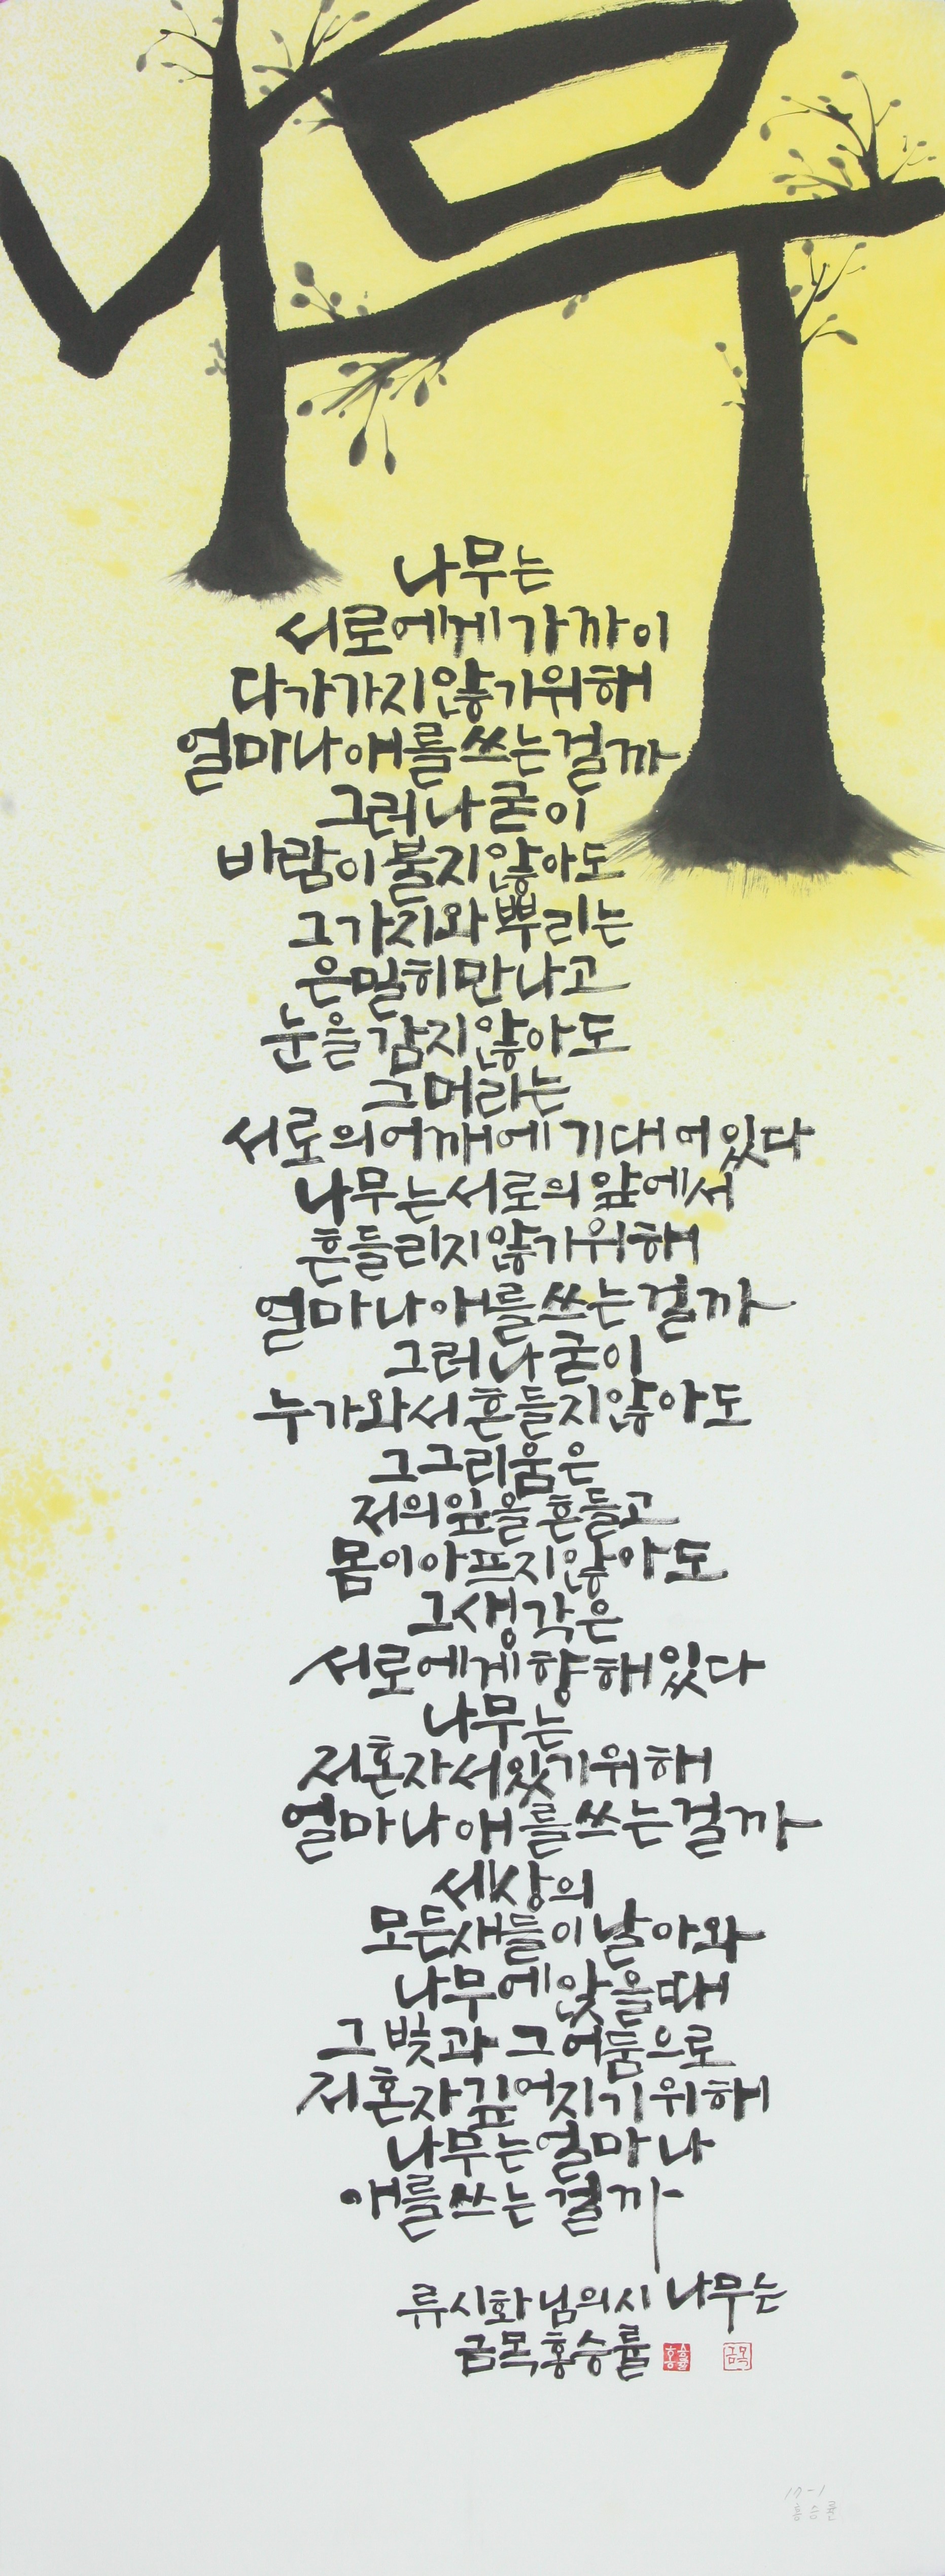 나무
나무는
서로에게 가까이
다가가지 않기 위해
얼마나 애를 쓰는 걸까
그러나 굳이
바람이 불지 않아도
그 가지와 뿌리는
은밀히 만나고
눈을 감지 않아도
그 머리는
서로의 어깨에 기대어 있다
나무는 서로의 앞에서
흔들리지 않기 위해
얼마나 애를 쓰는 걸까
그러나 굳이
누가 와서 흔들지 않아도
그 그리움은
저의 잎을 흔들고
몸이 아프지 않아도
그 생각은
서로에게 향해 있다
나무는
저 혼자 서 있기 위해
얼마나 애를 쓰는 걸까
세상의
모든 새들이 날아와
나무에 앉을 때
그 빛과 그 어둠으로
저 혼자 깊어지기 위해
나무는 얼마나
애를 쓰는 걸까
류시화님의 시 나무는
금목 홍승률
홍승률 금목
17-1
홍승률